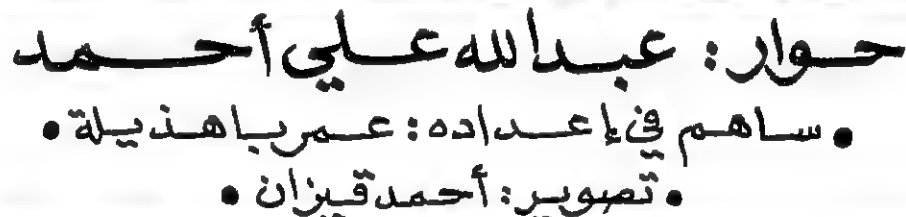 حوار: عبدالله علي أحمد
• ساهم في إعداده: عمر باهذيلة •
• تصوير: أحمد قيزان •